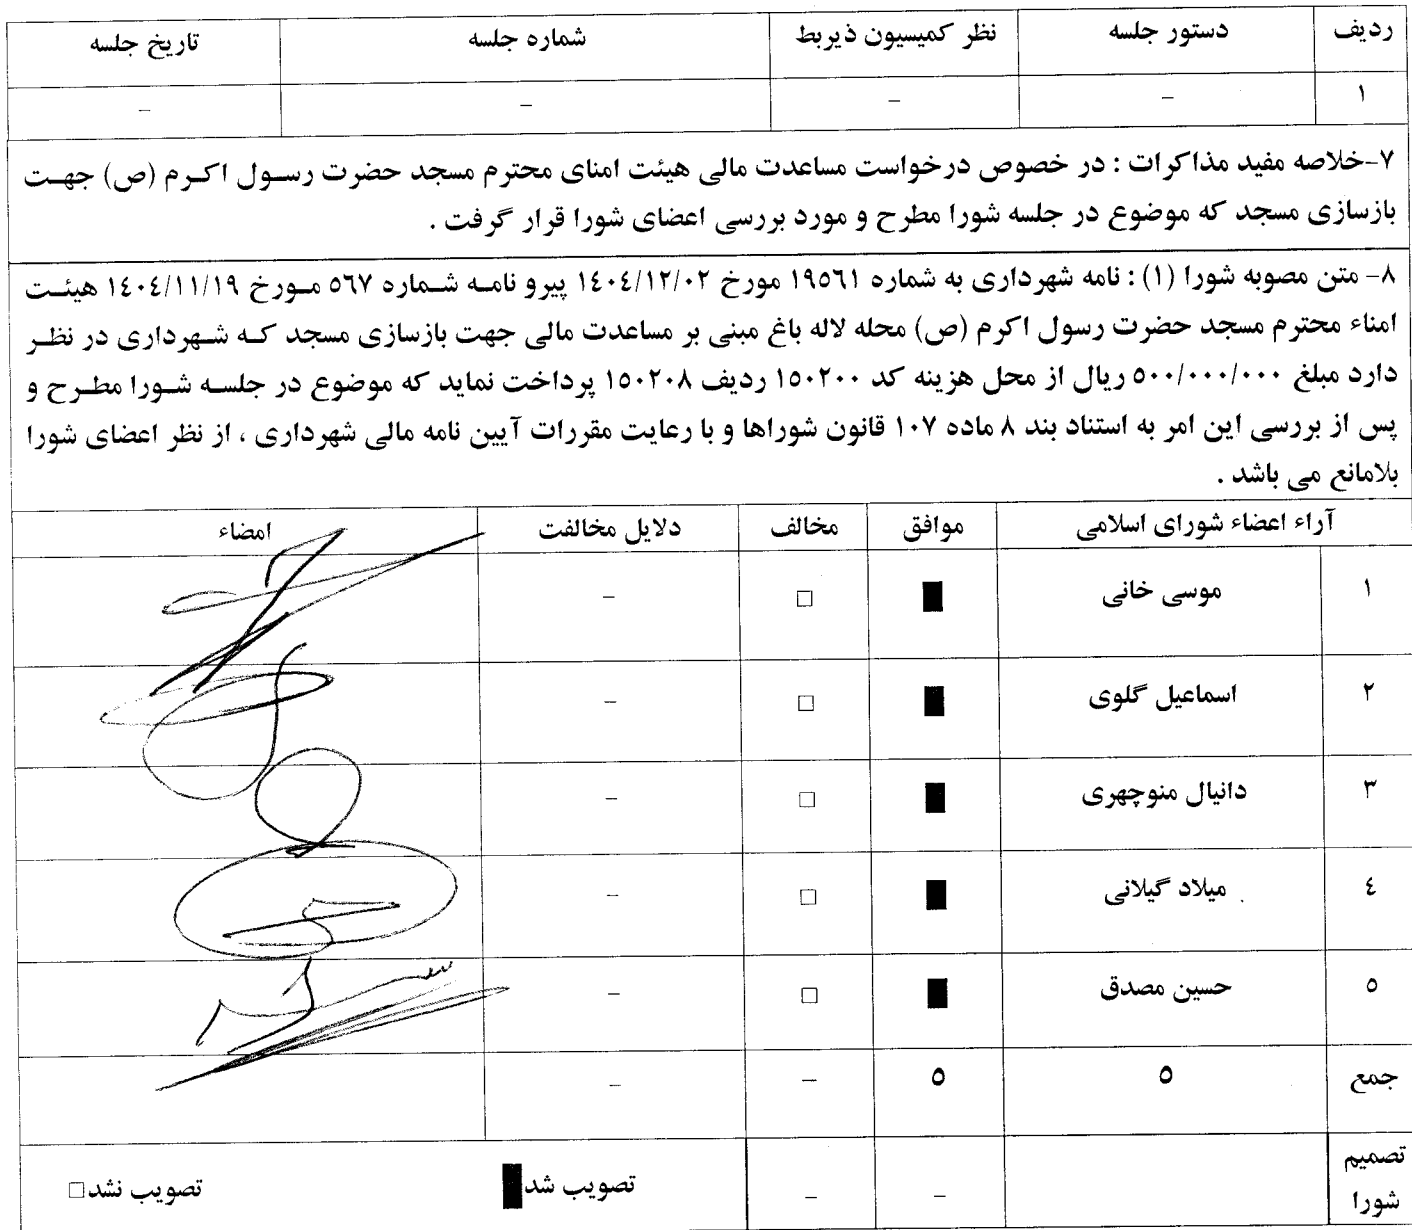 ردیف دستور جلسه نظر کمیسیون ذیربط شماره جلسه تاریخ جلسه
۱ – – – –
۷-خلاصه مفید مذاکرات : در خصوص درخواست مساعدت مالی هیئت امنای محترم مسجد حضرت رسـول اکـرم (ص) جهـت
بازسازی مسجد که موضوع در جلسه شورا مطرح و مورد بررسی اعضای شورا قرار گرفت .
۸- متن مصوبه شورا (۱) : نامه شهرداری به شماره ۱۹۵۶۱ مورخ ۱۴۰۴/۱۲/۰۲ پیرو نامـه شـماره ۵۶۷ مـورخ ۱۴۰۴/۱۱/۱۹ هیئـت
امناء محترم مسجد حضرت رسول اکرم (ص) محله لاله باغ مبنی بر مساعدت مالی جهت بازسازی مسجد کـه شـهرداری در نظـر
دارد مبلغ ۵۰۰/۰۰۰/۰۰۰ ریال از محل هزینه کد ۱۵۰۲۰۰ ردیف ۱۵۰۲۰۸ پرداخت نماید که موضوع در جلسـه شـورا مطـرح و
پس از بررسی این امر به استناد بند ۸ ماده ۱۰۷ قانون شوراها و با رعایت مقررات آیین نامه مالی شهرداری ، از نظر اعضای شورا
بلامانع می باشد .
آراء اعضاء شورای اسلامی موافق مخالف دلایل مخالفت امضاء
۱ موسی خانی ■ □ –
۲ اسماعیل گلوی ■ □ –
۳ دانیال منوچهری ■ □ –
۴ میلاد گیلانی ■ □ –
۵ حسین مصدق ■ □ –
جمع ۵ ۵ – –
تصمیم
شورا – – تصویب شد■ تصویب نشد□